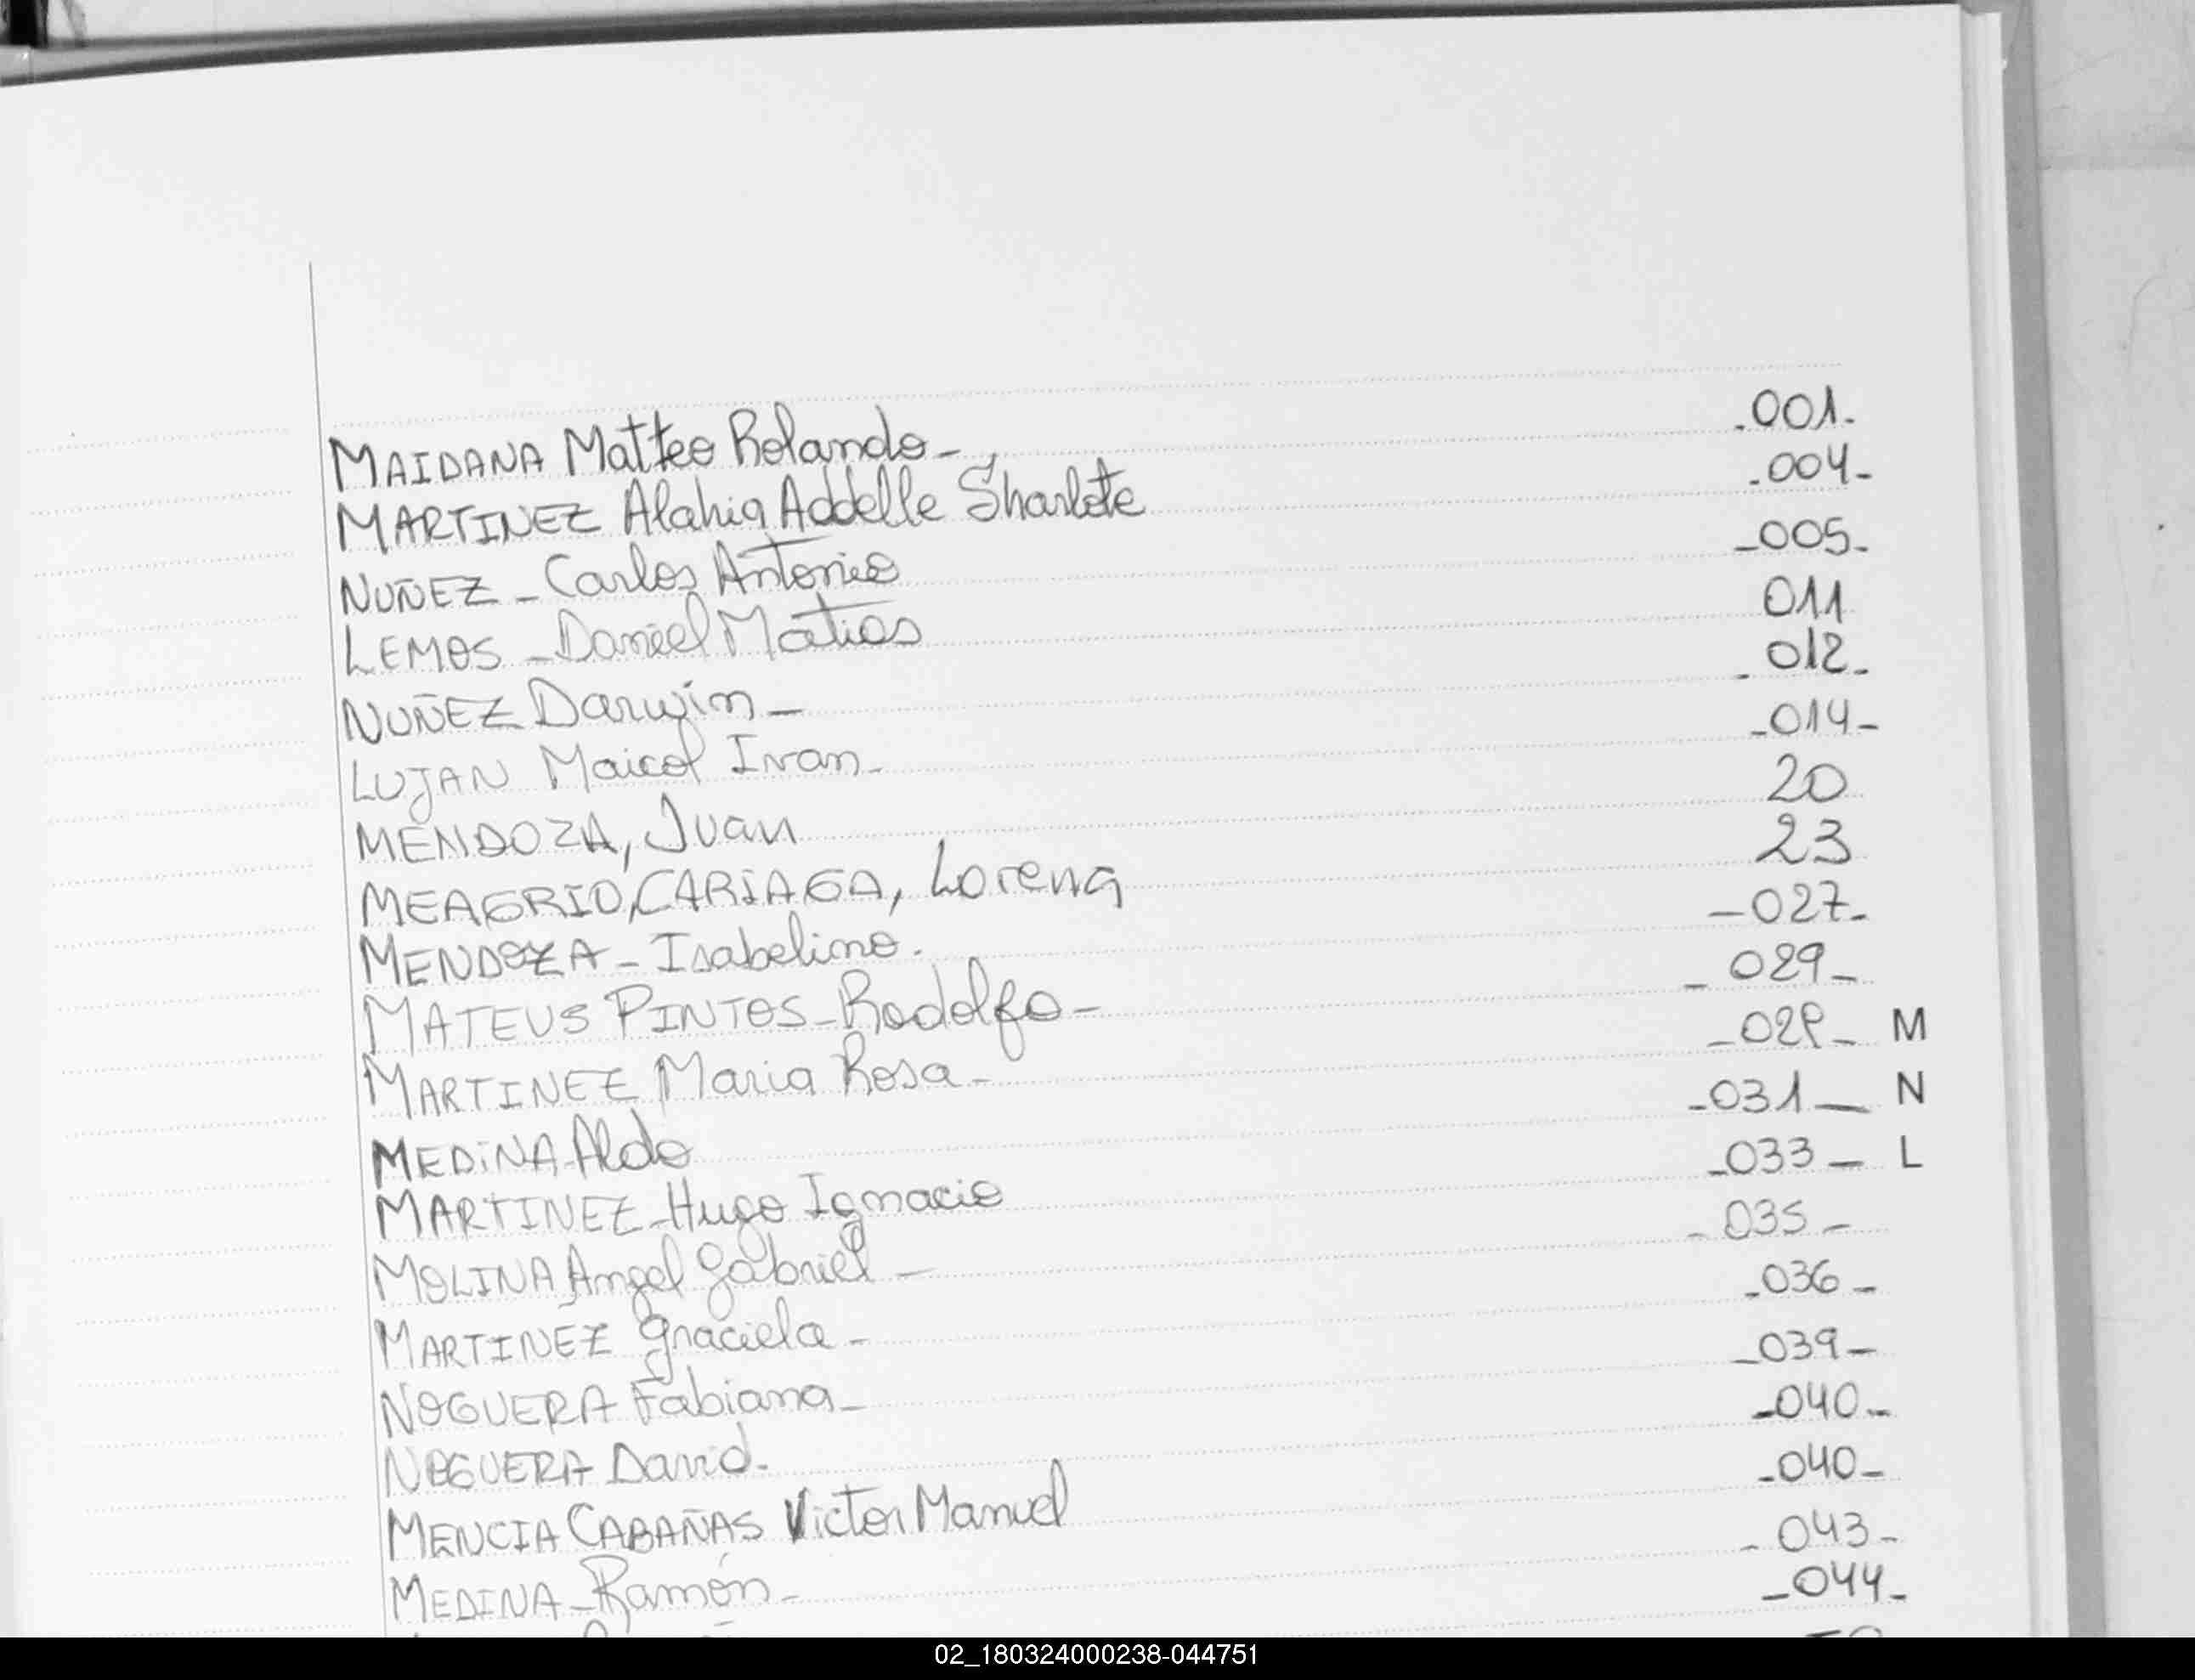 MAIDANA Matteo Rolando - .001.
MARTINEZ Alahia Addelle Sharlote .004-
NUÑEZ - Carlos Antonio -005-
LEMOS - Daniel Matias 011
NUÑEZ Darwin - . 012-
LUJAN Maicol Ivan - -014-
MENDOZA, Juan 20
MEAGRIO, CARiAGA, Lorena 23
MENDOZA - Isabelino. -027-
MATEUS PINTOS - Rodolfo - - 029-
MARTINEZ Maria Rosa - -029- M
MEDiNA - Aldo -031- N
MARTINEZ - Hugo Ignacio -033- L
MOLINA Angel Gabriel - - 035 -
MARTINEZ Graciela - -036-
NOGUERA Fabiana - -039-
NOGUERA David. -040-
MENCIA CABAÑAS Victor Manuel -040-
MEDINA - Ramón - - 043-
-044-
02_180324000238-044751